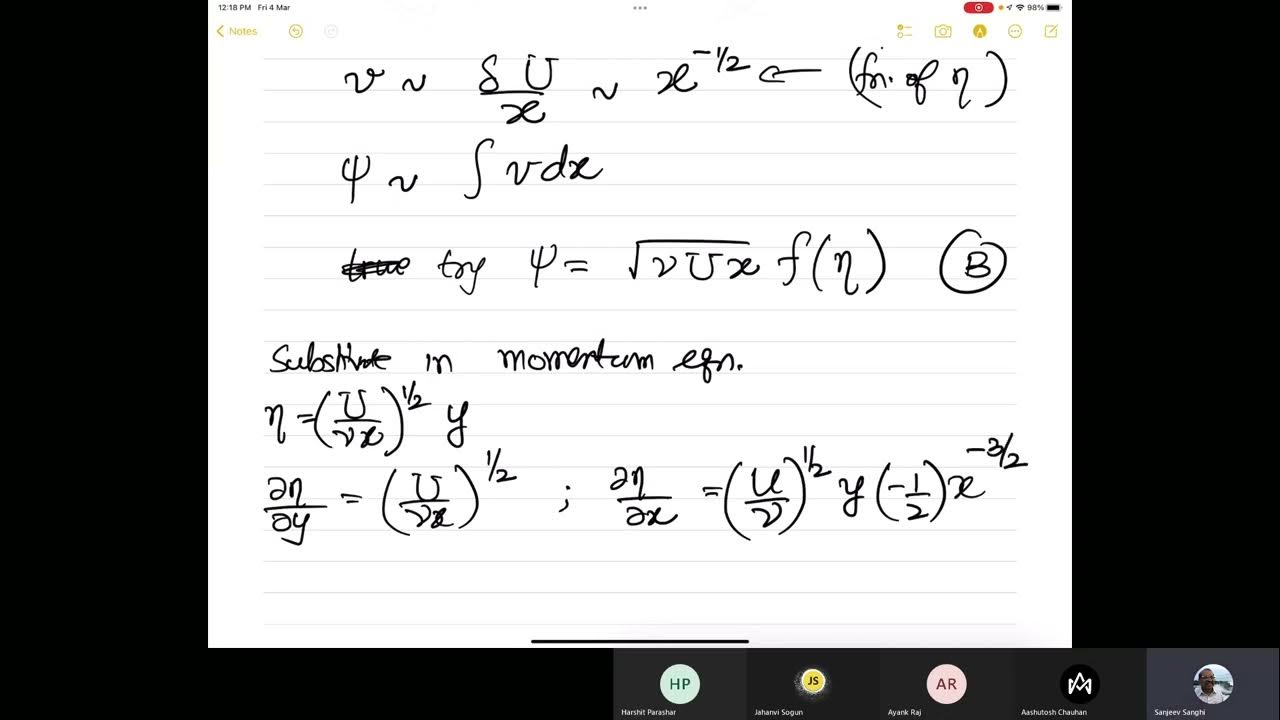 12:18 PM Fri 4 Mar 98%
Notes
v ~ δU/x ~ x^{-1/2} ← (fn. of η)
ψ ~ ∫ v dx
try ψ = √(νUx) f(η) (B)
Substitute in momentum eqn.
η = (U/νx)^{1/2} y
∂η/∂y = (U/νx)^{1/2} ; ∂η/∂x = (U/ν)^{1/2} y (-1/2) x^{-3/2}
HP JS AR
Harshit Parashar Jahanvi Sogun Ayank Raj Aashutosh Chauhan Sanjeev Sanghi